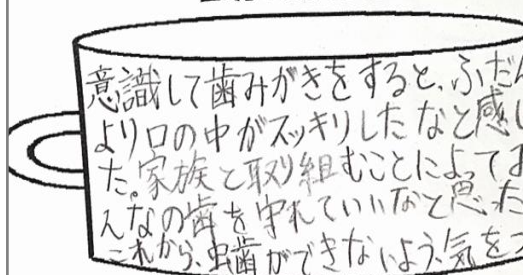 意識して歯みがきをすると、ふだん
より口の中がスッキリしたなと感じ
た。家族と取り組むことによって
んなの歯を守れていいなと思った
これから、虫歯ができないよう、気を